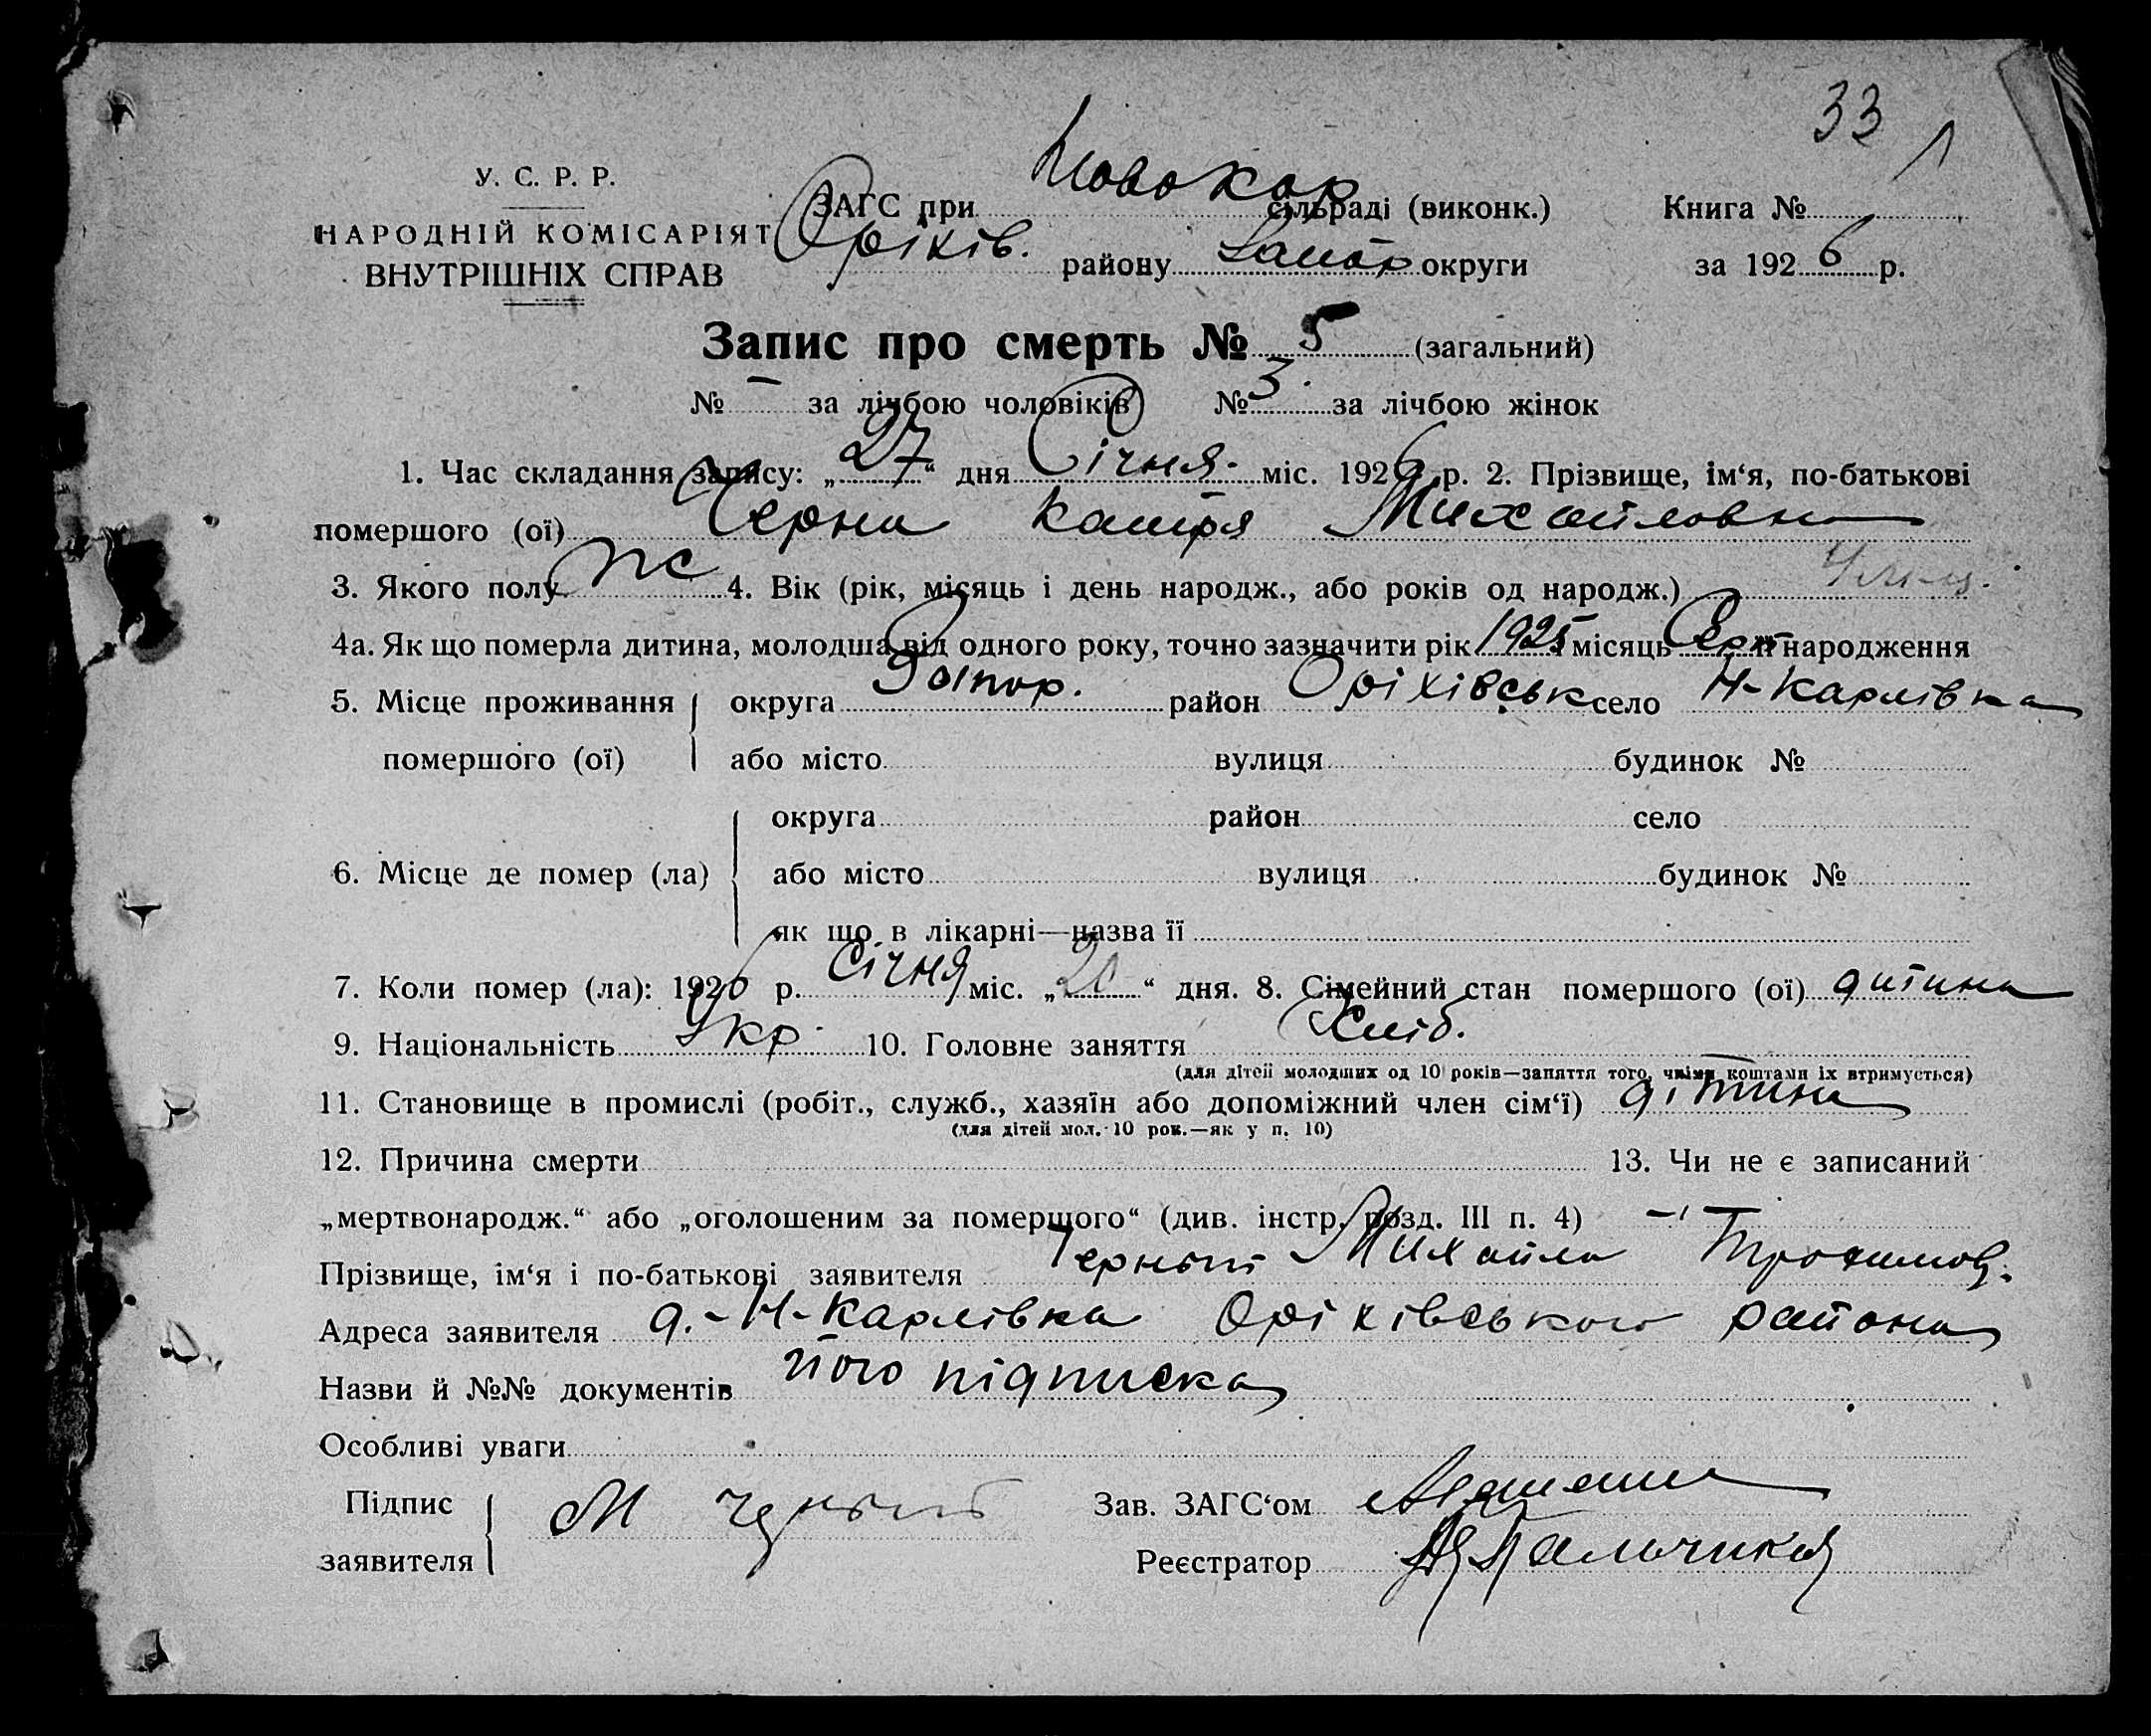 33
1
У. С. Р. Р.
НАРОДНІЙ КОМІСАРІЯТ
ВНУТРІШНІХ СПРАВ
ЗАГС при Новокар сільраді (виконк.)
Оріхів. району Запор округи
Книга №
за 1926 р.
Запис про смерть № 5 (загальний)
№ — за лічбою чоловіків № 3. за лічбою жінок
1. Час складання запису: „27“ дня Січня міс. 1926 р. 2. Прізвище, ім‘я, по-батькові
помершого (ої) Черна Катря Михайловна
3. Якого полу ж 4. Вік (рік, місяць і день народж., або років од народж.)
4а. Як що померла дитина, молодша від одного року, точно зазначити рік 1925 місяць й народження
5. Місце проживання помершого (ої) округа Запор. район Оріхівськ село Н-Карлівка
або місто вулиця будинок №
6. Місце де помер (ла) округа район село
або місто вулиця будинок №
як що в лікарні—назва її
7. Коли помер (ла): 1926 р. Січня міс. „20“ дня. 8. Сімейний стан помершого (ої) дитина
9. Національність Укр. 10. Головне заняття Хліб.
(для дітей молодших од 10 років—заняття того, чиїми коштами їх втримується)
11. Становище в промислі (робіт., служб., хазяїн або допоміжний член сім‘ї) дітина
(для дітей мол. 10 рок.—як у п. 10)
12. Причина смерти 13. Чи не є записаний
„мертвонародж.“ або „оголошеним за померщого“ (див. інстр. розд. III п. 4) —
Прізвище, ім‘я і по-батькові заявителя Черный Михайло Трохимов.
Адреса заявителя д.-Н-Карлівка Оріхівського района
Назви й №№ документів його підписка
Особливі уваги
Підпис заявителя М Черный
Зав. ЗАГС‘ом
Реєстратор